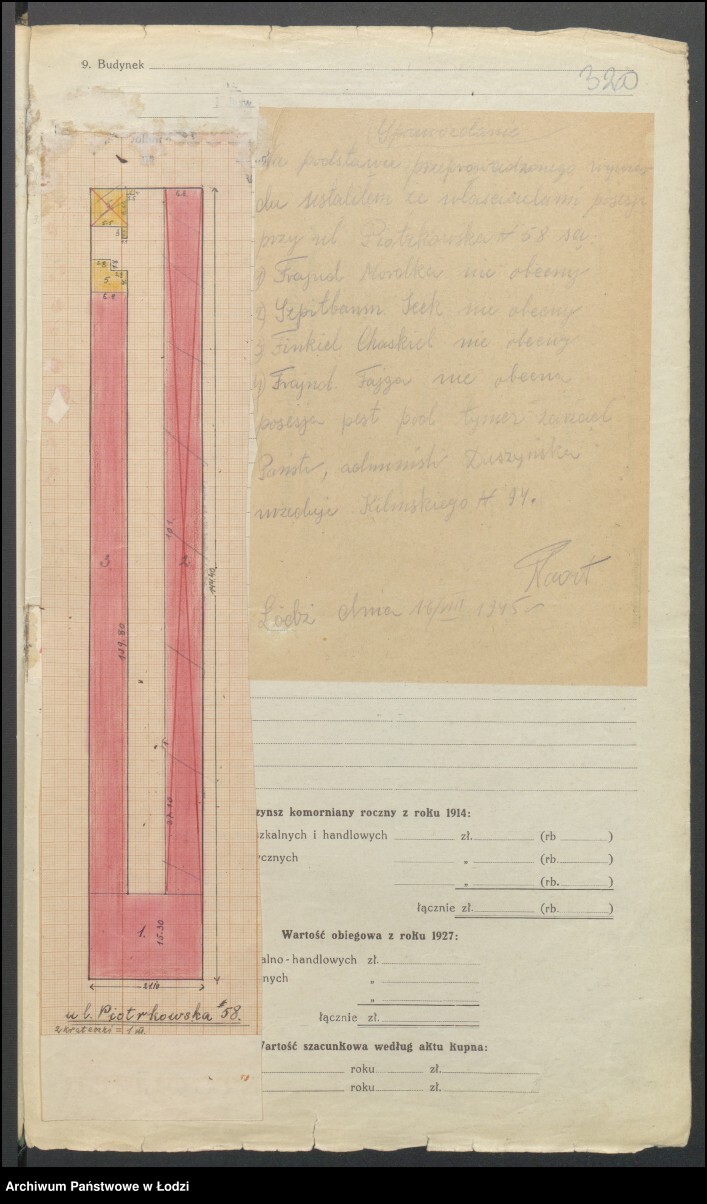 9. Budynek
320
Sprawozdanie
Na podstawie przeprowadzonego wywia-
du ustaliłem że właścicielami posesji
przy ul. Piotrkowska № 58 są:
1) Frajnd Mordka nie obecny
2) Szpitbaum Icek nie obecny
3) Finkiel Chaskiel nie obecny
4) Frajnd Fajga nie obecna
posesja jest pod tymcz zarząd
Państw, administr Duszyńska
urzęduje Kilińskiego № 94.
Łódź dnia 16/VIII 1945
5.
6.8
3
2
129.80
144.40
1.
15.30
21.10
ul. Piotrkowska № 58.
2 krateczki = 1 m.
zynsz komorniany roczny z roku 1914:
szkalnych i handlowych zł. (rb )
ycznych „ (rb. )
„ (rb. )
łącznie zł. (rb. )
Wartość obiegowa z roku 1927:
alno-handlowych zł.
nych „
„
łącznie zł.
Wartość szacunkowa według aktu kupna:
roku zł.
roku zł.
Archiwum Państwowe w Łodzi